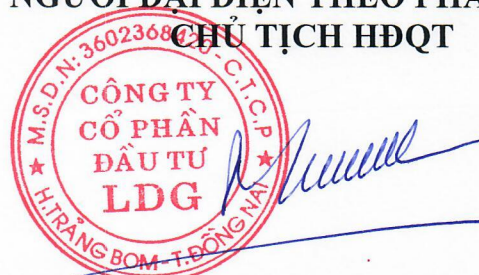 NGƯỜI ĐẠI DIỆN THEO PHÁ
CHỦ TỊCH HĐQT
M.S.D.N: 3602368420-C.T.C.P
CÔNG TY
CỔ PHẦN
ĐẦU TƯ
LDG
H.TRẢNG BOM-T.ĐỒNG NAI